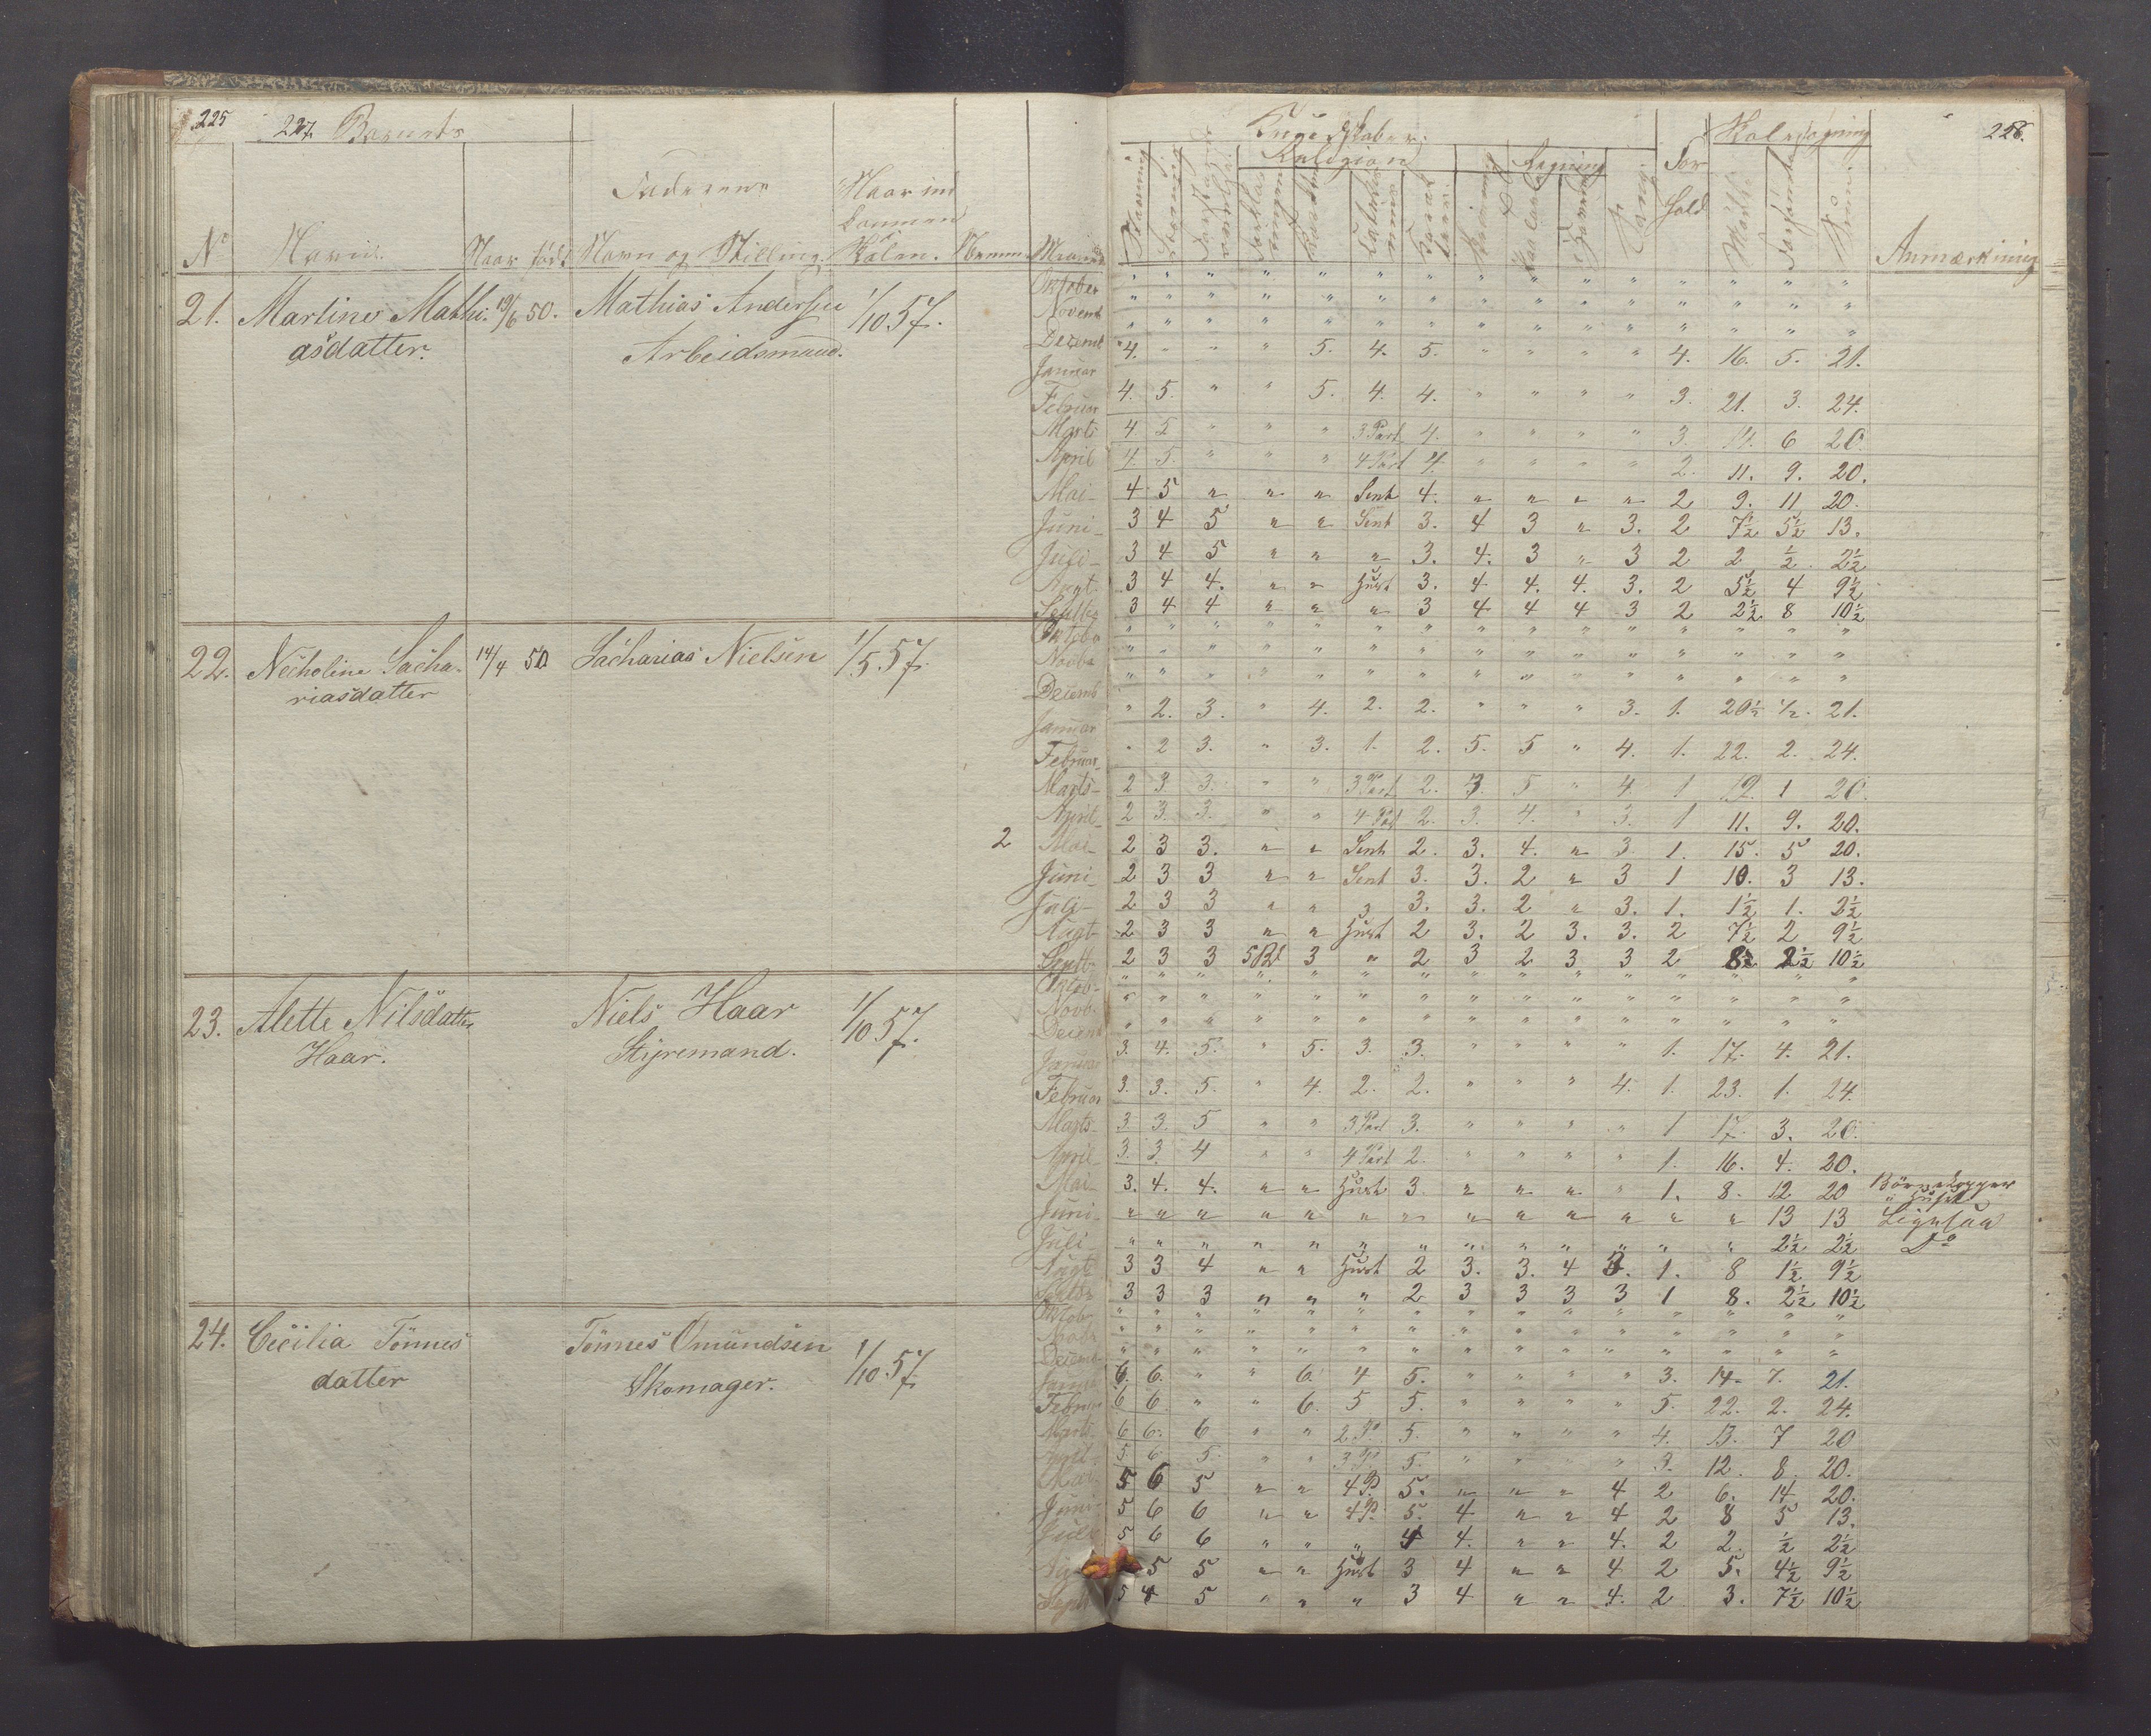 225 227. Barnets
Faderens
Naar ind
kommen
No Navn. Naar født Navn og Stilling. Skolen. Numm. Maaned
21. Martine Mathi- 19/6 50. Mathias Andersen 1/10 57.
asdatter. Arbeidsmand.
22. Necholine Sacha- 14/4 50 Sacharias Nielsen 1/5 57.
riasdatter
2
23. Alette Nilsdatter Niels Haar 1/10 57.
Haar. Styremand.
24. Cicilia Tönnes Tönnes Omundsen 1/10 57.
datter Skomager.
228.
Religion Læsning For Skolesøgning
hold
Sang Mødte Forsømte
Anmærkning
Oktober " " " " " " " " " " " " " " "
Novemb " " " " " " " " " " " " " " "
Decemb " " " " " " " " " " " " " " "
Januar 4. " " " 5. 4. 5. " " " " 4. 16. 5. 21.
Februar 4. 5. " " 5. 4. 4. " " " " 3. 21. 3. 24.
Marts 4 5 " " " 3 Part 4. " " " " 3. 14. 6 20
April 4. 5. " " " 4 Part 4. " " " " 2. 11. 9. 20.
Mai 4 5 " " " Sent 4. " " " " 2 9. 11 20.
Juni 3 4 5 " " Sent 3. 4 3 " 3. 2 7½ 5½ 13.
Juli 3 4 5 " " " 3. 4. 3 " 3 2 2 ½ 2½
Augt 3 4 4. " " Hust 3. 4 4. 4. 3. 2 5½ 4 9½
Septbr 3 4 4 " " " 3 4 4 4 3 2 2½ 8 10½
Oktobr " " " " " " " " " " " " " " "
Novbr " " " " " " " " " " " " " " "
Decemb " " " " " " " " " " " " " " "
Januar " 2. 3. " 4. 2. 2. " " " 3. 1. 20½ ½. 21.
Februar " 2 3. " 3. 1. 2. 5. 5 " 4. 1. 22. 2. 24.
Marts 2 3 3. " " 3 Part 2. 3. 5 " 4. 1 19. 1 20.
April 2 3. 3. " " 4 Part 2. 3. 4. " 3. 1 11. 9. 20.
Mai 2 3 3. " " Sent 2. 3. 4. " 3 1. 15. 5 20.
Juni 2 3 3 " " Sent 3. 3. 2 " 3 1 10. 3 13.
Juli 2 3 3 " " " 3. 3. 2 " 3. 1. 1½ 1. 2½
Augt 2 3 3 " " Hust 2 3. 2 3. 3. 2 7½ 2 9½
Septb 2 3 3 5 Bd 3 " 2 3 2 3 3 2 8½ 2½ 10½
Octob " " " " " " " " " " " " " " "
Novb " " " " " " " " " " " " " " "
Decemb " " " " " " " " " " " " " " "
Januar 3. 4. 5. " 5. 3. 3. " " " " 1. 17. 4. 21.
Februar 3. 3. 5. " 4. 2. 2. " " " 4. 1. 23. 1. 24.
Marts 3. 3. 5 " " 3 Part 3. " " " " 1 17. 3. 20.
April 3. 3. 4 " " 4 Part 2. " " " " 1. 16. 4. 20.
Mai 3. 4. 4. " " Hust 3. " " " " 1. 8. 12 20 Börnekopper
" Huset
Juni " " " " " " " " " " " " " 13 13 Ligesaa
Juli " " " " " " " " " " " " " 2½ 2½ Do
Augt 3 3 4 " " Hust 2 3. 3. 4 3. 1. 8 1½ 9½
Septbr 3 3 3 " " " 2 3 3 3 3 1 8. 2½ 10½
Oktob " " " " " " " " " " " " " " "
Novbr " " " " " " " " " " " " " " "
Decemb " " " " " " " " " " " " " " "
Januar 6. 6. " " 6. 4 5. " " " " 3. 14. 7. 21.
Februar 6 6 " " 6. 5 5. " " " " 5. 22. 2. 24.
Marts 6 6. 6 " " 2 P. 5. " " " " 4. 13. 7 20
April 5 6 5. " " 3 P. 5. " " " " 3. 12. 8. 20.
Mai 5 6 5 " " 4 P. 5. " " " 4 2 6. 14 20.
Juni 5 6 6 " " 4 P. 5. 4 " " 4 2 8 5 13.
Juli 5 6 6 " " " 4 4. " " 4. 2 2. ½ 2½
5 5 " " Hust 3 4 " " 4 2 5. 4½ 9½
Septb 5 4 5 " " " 3 4 " " 4. 2 3. 7½ 10½